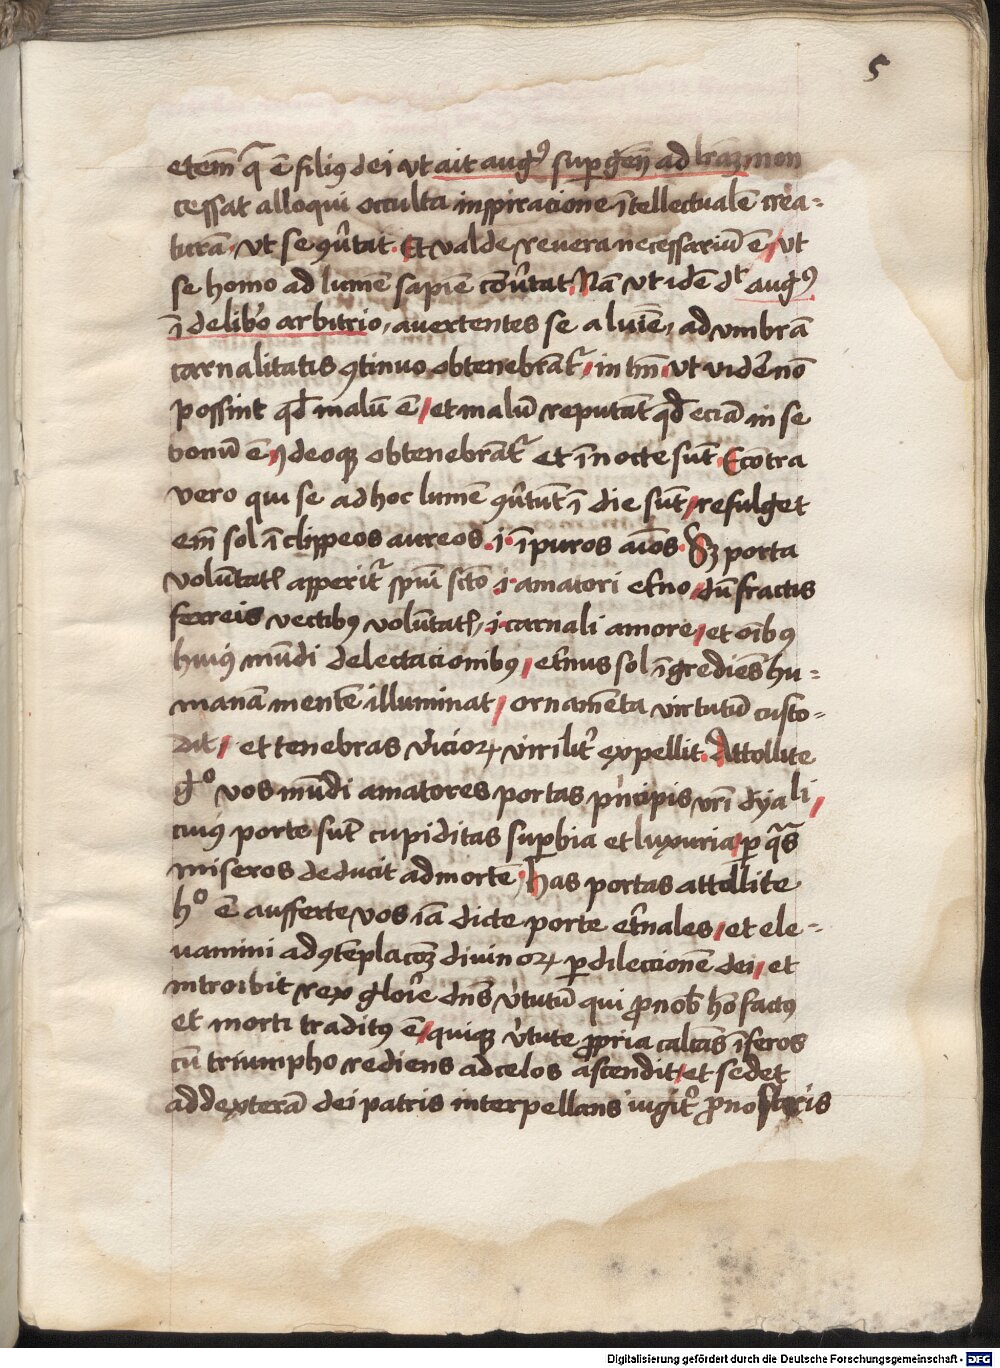 5
etem̄ qͣ ē filiꝰ dei vt ait augꝰ sup gen̄ ad lr̄am non
cessat alloqui occulta inspiracione ītellectualē crea-
turā. vt se ꝯūtat. Et valde revera necessariū ē / vt
se homo ad lumē sapiē cōūtat. Nā vt idē dt augꝰ
ī de libo arbitrio, avertentes se a lumē, ad vmbrā
carnalitatis ꝯtinuo obtenebrāt / in tm̄ vt vidē nō
possint qd̄ malū ē / et malū reputāt qd̄ eciā in se
bonū ē / Ideoqꝫ obtenebrāt et ī nocte sūt. Econtra
vero qui se ad hoc lumē ꝯūtūt ī die sūt / refulget
em̄ sol ī clippeos aureos .i. ī puros aīos. Sꝫ porta
volūtatꝭ apperit spūi sctō .i. amatori etno / dū fractis
ferreis vectibꝰ volūtatꝭ, .i. carnali amore / et oībꝰ
huiꝰ mūdi delectacionibꝰ / etnus sol īgrediēs hu-
manā mentē illuminat / ornamēta virtutū custo-
dit / et tenebras vicioꝝ virilit expellit. Attollite
gͦ vos mūdi amatores portas pncipis vrī dyali /
cuiꝰ porte sūt cupiditas supbia et luxuria / ꝑ qͣs
miseros deducit ad mortē. has portas attollite
hͦ ē aufferte vos iā dicte porte etnales / et ele-
vamini ad ꝯtēplacōꝫ divinoꝝ ꝑ dileccionē dei / et
introibit rex glorie dn̄s vtutū qui ꝓ nob hō factꝰ
et morti traditꝰ ē / quiqꝫ vtute ꝓpria calcās īferos
cū triumpho rediens ad celos ascendit / et sedet
ad dexterā dei patris interpellans iugit ꝓ nostris
Digitalisierung gefördert durch die Deutsche Forschungsgemeinschaft - DFG